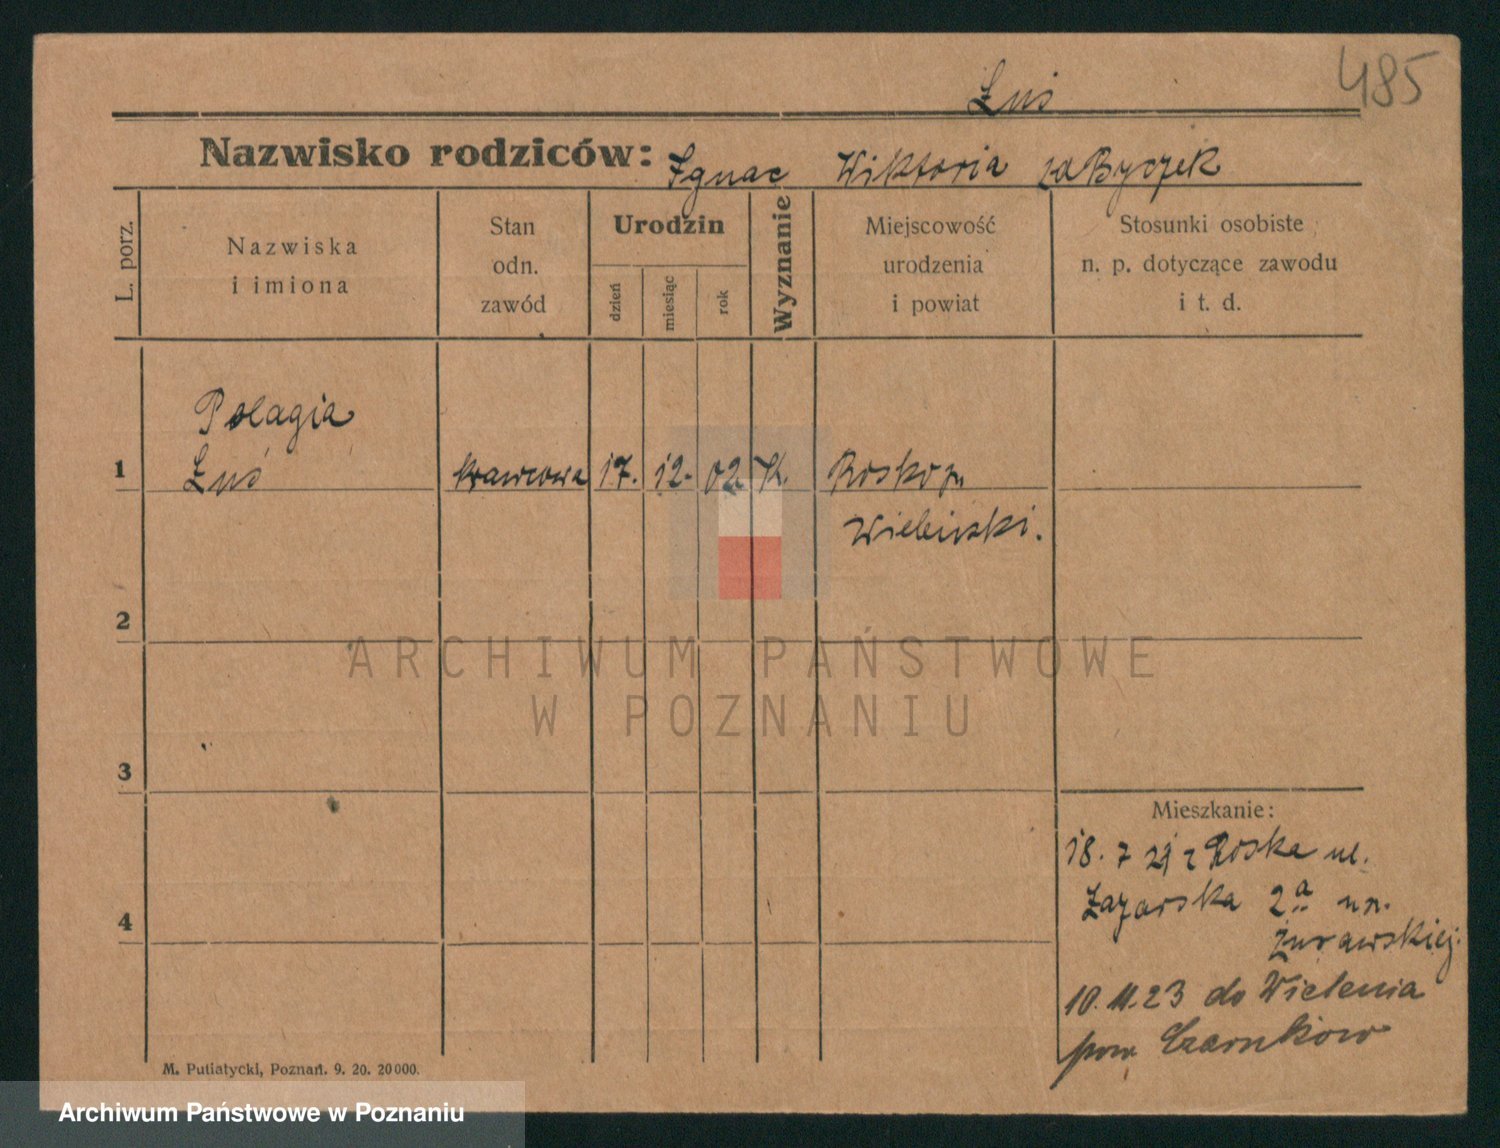 485
Łuś
Nazwisko rodziców: Ignac Wiktoria zaByczek
L. porz.
Nazwiska
i imiona
Stan
odn.
zawód
Urodzin
dzień
miesiąc
rok
Wyznanie
Miejscowość
urodzenia
i powiat
Stosunki osobiste
n. p. dotyczące zawodu
i t. d.
Pelagia
1 Łuś krawcowa 17. 12. 02 K. Rosko p.
Wieleński.
2
ARCHIWUM PAŃSTWOWE
W POZNANIU
3
Mieszkanie:
18. 7 21 z Roska ul.
Łazarska 2a
4
Żurawskiej.
10. 11. 23 do Wielenia
pow Czarnków
M. Putiatycki, Poznań. 9. 20. 20000.
Archiwum Państwowe w Poznaniu